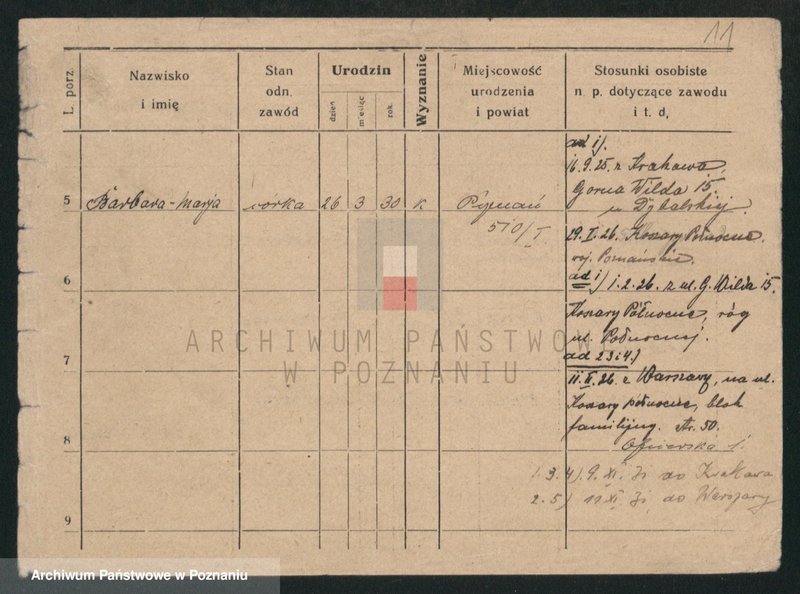 11
L. porz
Nazwisko
i imię
Stan
odn.
zawód
Urodzin
dzień
miesiąc
rok
Wyznanie
Miejscowość
urodzenia
i powiat
Stosunki osobiste
n. p. dotyczące zawodu
i t. d,
5
Barbara-Marja
córka
26
3
30
k
Poznań
510/I
ad 1).
16.9.25. z Krakowa,
Gorna Wilda 15.
u Dybalskiej.
29.I.26. Koszary Północne.
woj. Poznańskie.
6
ad 1) 1.2.26. z ul. G. Wilda 15.
Koszary Północne, róg
ul. Północnej.
7
ad 2 3 i 4.)
11.II.26. z Warszawy, na ul.
Koszary północne, blok
familijny. Nr. 50.
8
1.3.4) 9.XI. 31 do Krakowa
2.5) 19 XI. 31. do Warszawy
9
ARCHIWUM PAŃSTWOWE
W POZNANIU
Archiwum Państwowe w Poznaniu